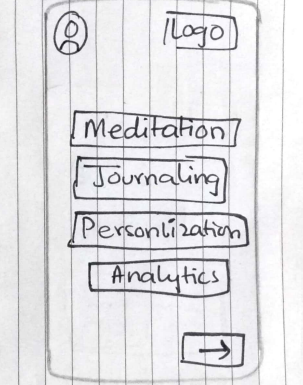 Logo
Meditation
Journaling
Personlization
Analytics
→